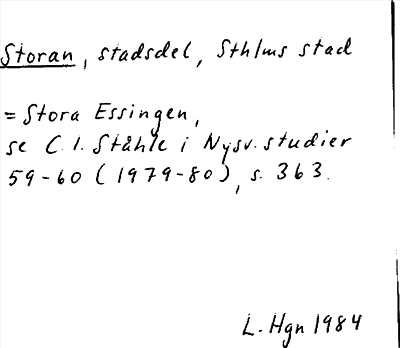 Storan, stadsdel, Sthlms stad
= Stora Essingen,
se C. I. Ståhle i Nysv. studier
59-60 (1979-80), s. 363.
L. Hgn 1984